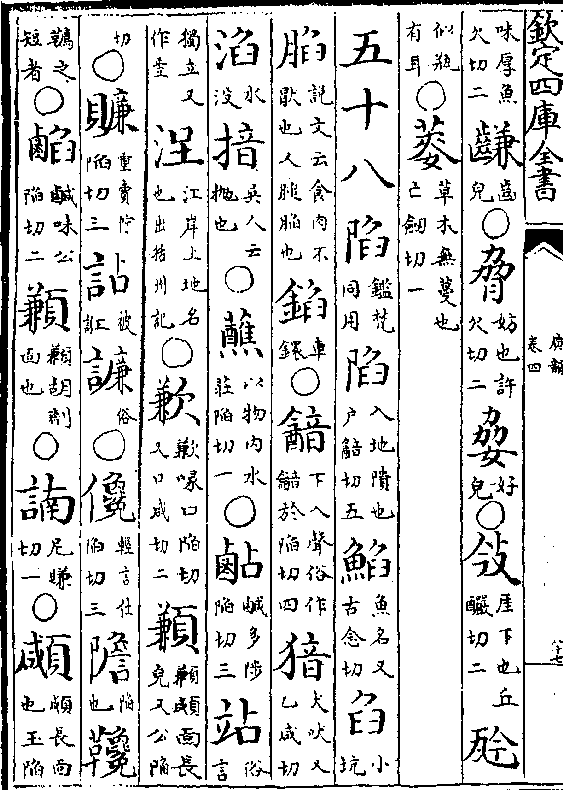 欽定四庫全書
廣韻
卷四
八十七
味厚魚欠切二 齒皃○脅妨也許欠切二 好皃○㪁厓下也丘釅切二
似瓶有耳○ 草木無蔓也亡劒切一
五十八陷鑑梵同用陷入地隤也戶韽切五䱤魚名又古念切臽小坑
䐄說文云食肉不猒也人 䐄也錎車鐶○韽下入聲俗作 於陷切四 犬吠又乙咸切
淊水沒揞吳人云抛也○蘸以物內水莊陷切一○ 鹹多陟陷切三站俗言
獨立又作 江岸上地名也出括州記○歉歉喙口陷切又口咸切二䫡䫡顑面長皃又公陷
切○賺重賣佇陷切三詀被誑譧俗○儳輕言仕陷切三 陷也
之短者○ 鹹味公陷切二䫡 面也○諵尼賺切一○顑顑長面也玉陷